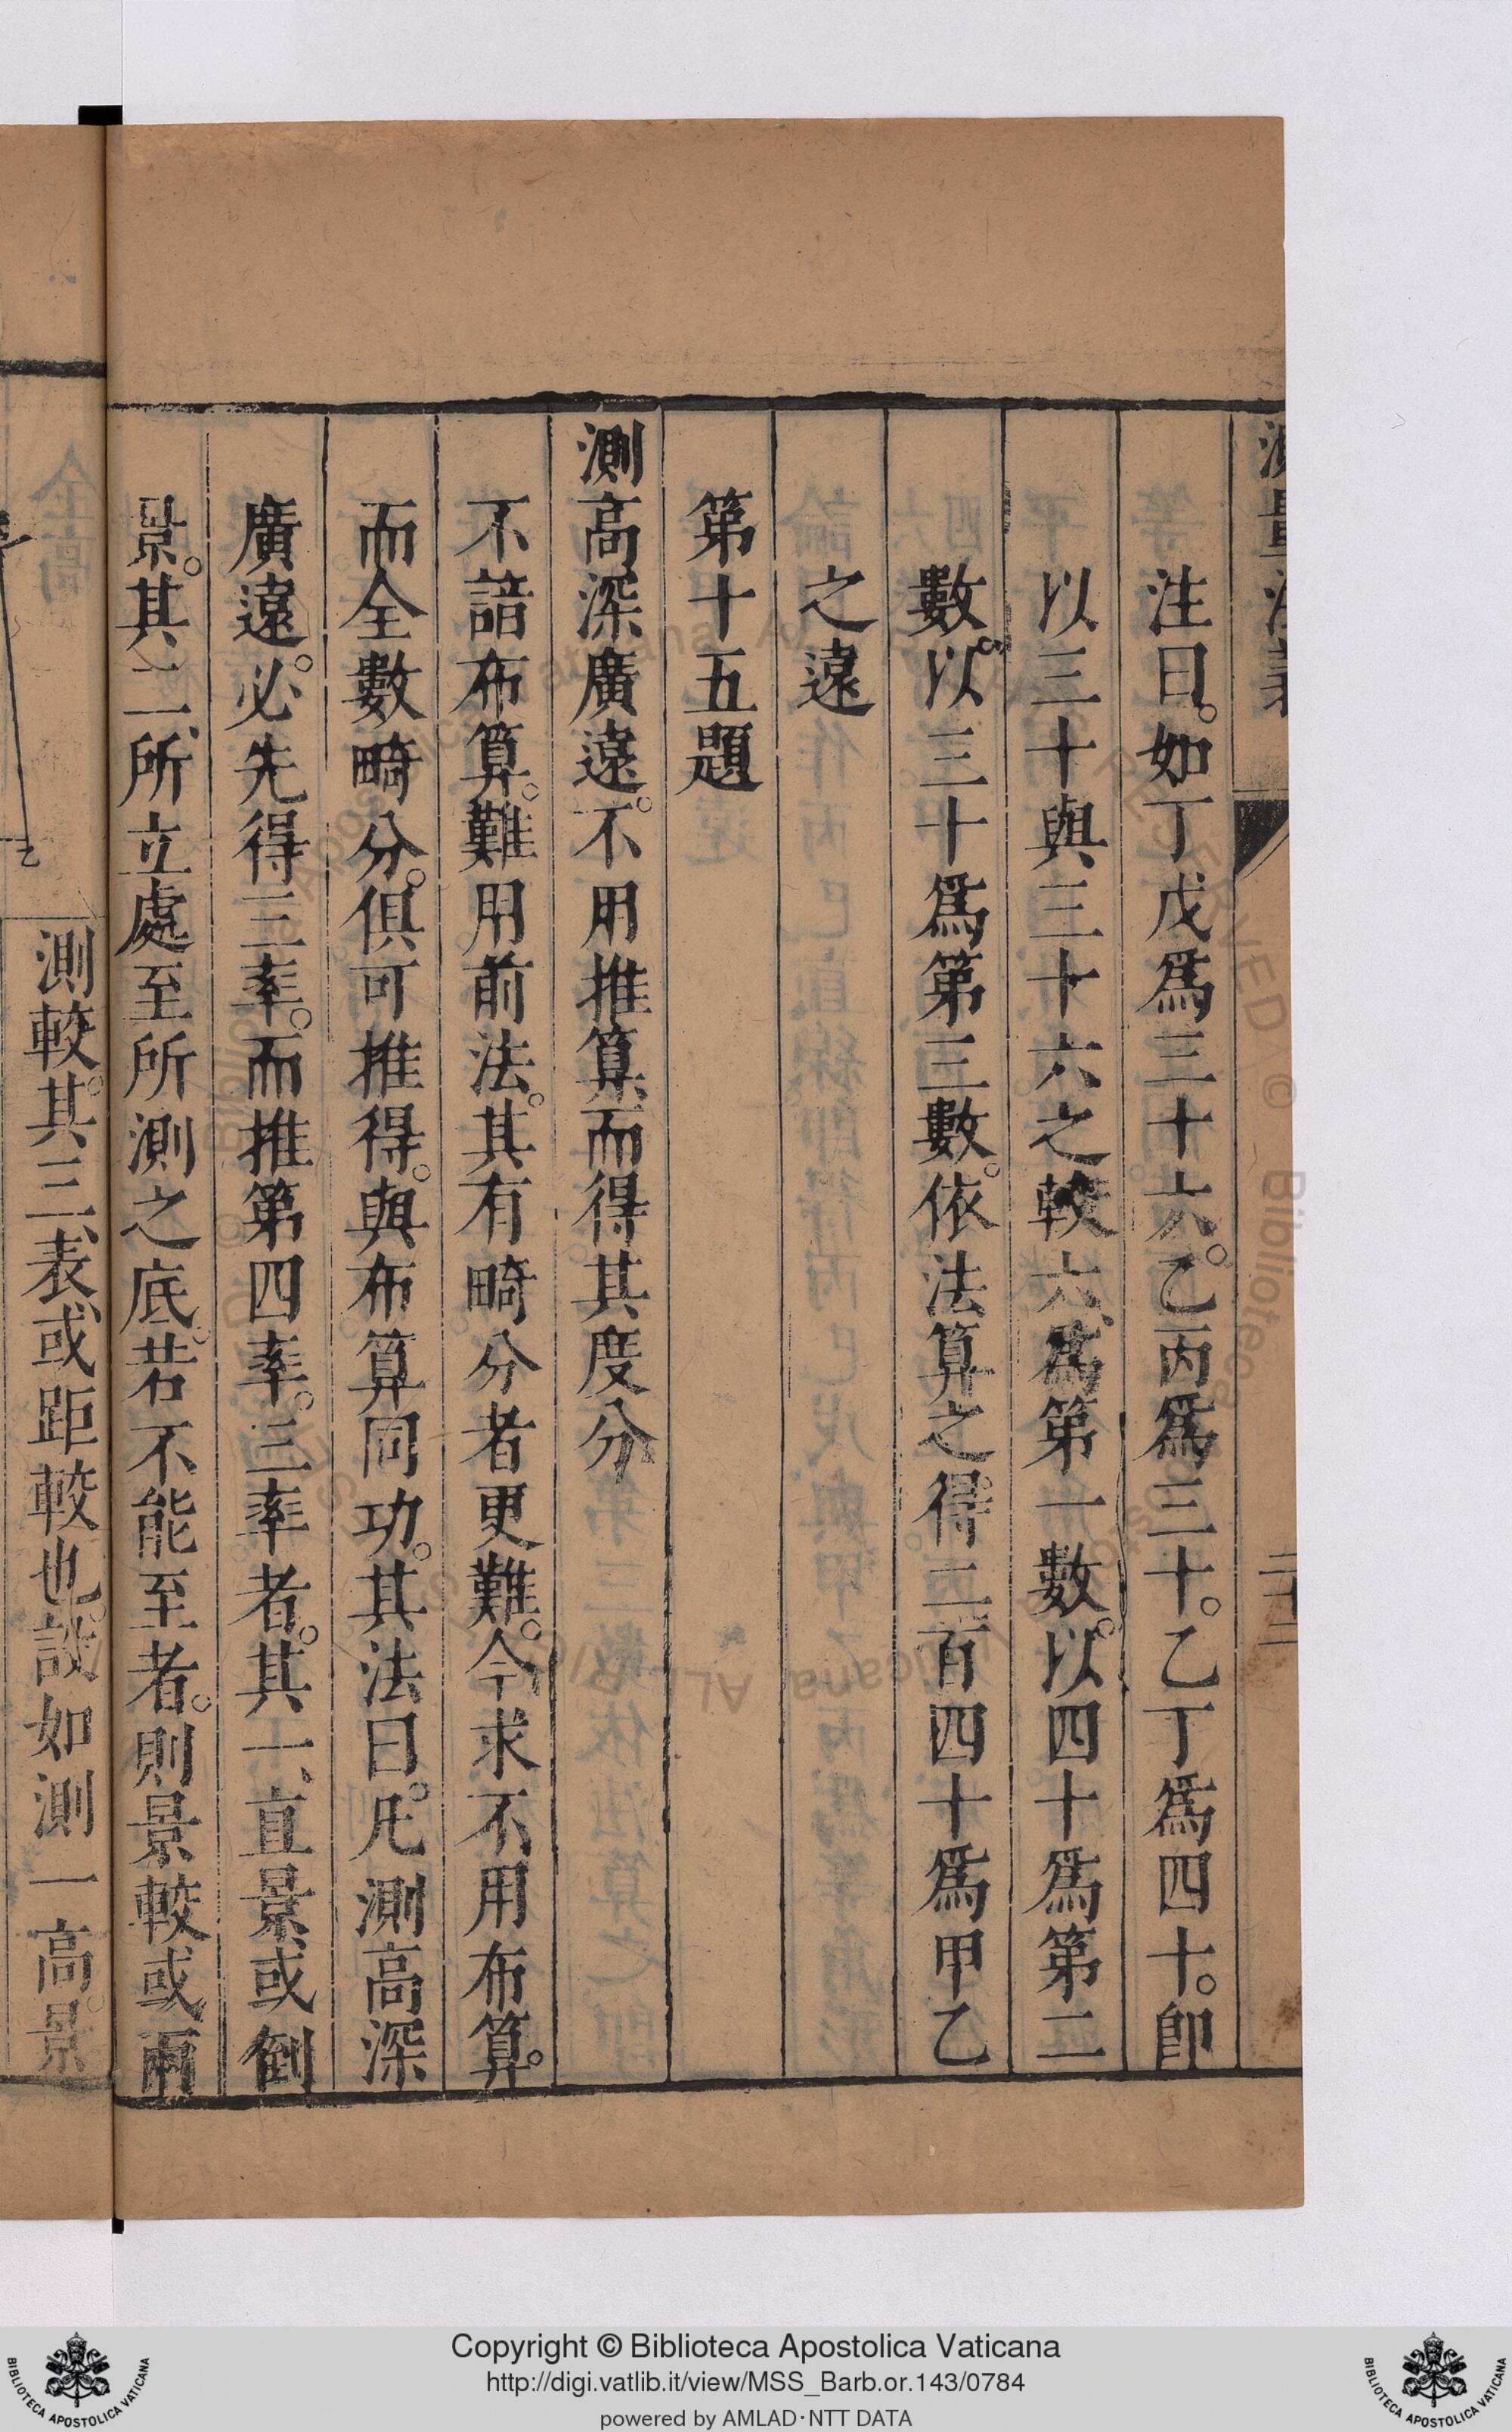 測量法義
二十二
注曰。如丁戊爲三十六。乙丙爲三十。乙丁爲四十。卽
以三十與三十六之較六、爲第一數。以四十爲第二
數。以三十爲第三數。依法算之。得二百四十爲甲乙
之遠
第十五題
測高深廣遠。不用推算而得其度分
不諳布算。難用前法。其有畸分者更難。今求不用布算。
而全數畸分。俱可推得。與布算同功。其法曰。凡測高深
廣遠。必先得三率。而推第四率。三率者。其一、直景或倒
景。其二、所立處至所測之底。若不能至者。則景較或兩
測較。其三、表或距較也。設如測一高。景
乙
Copyright © Biblioteca Apostolica Vaticana
http://digi.vatlib.it/view/MSS_Barb.or.143/0784
powered by AMLAD·NTT DATA
BIBLIOTECA APOSTOLICA VATICANA
BIBLIOTECA APOSTOLICA VATICANA